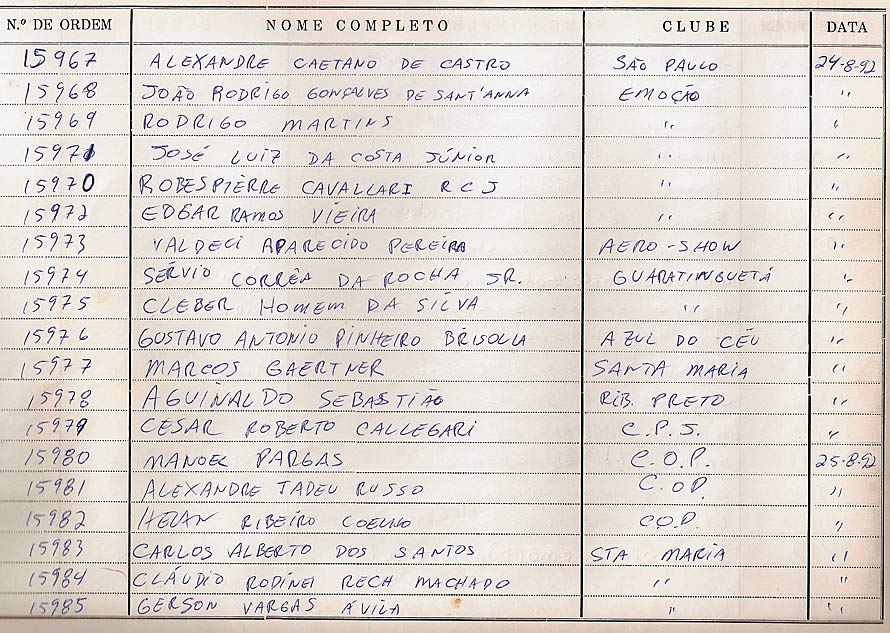 N.º DE ORDEM NOME COMPLETO CLUBE DATA
15967 ALEXANDRE CAETANO DE CASTRO SÃO PAULO 24-8-92
15968 JOÃO RODRIGO GONÇALVES DE SANT'ANNA EMOÇÃO "
15969 RODRIGO MARTINS " "
15971 JOSÉ LUIZ DA COSTA JÚNIOR " "
15970 ROBESPIERRE CAVALLARI R C J " "
15972 EDGAR RAMOS VIEIRA " "
15973 VALDECI APARECIDO PEREIRA AERO-SHOW "
15974 SÉRVIO CORRÊA DA ROCHA JR. GUARATINGUETÁ "
15975 CLEBER HOMEM DA SILVA " "
15976 GUSTAVO ANTONIO PINHEIRO BRISOLLA AZUL DO CÉU "
15977 MARCOS GAERTNER SANTA MARIA "
15978 AGUINALDO SEBASTIÃO RIB. PRETO "
15979 CESAR ROBERTO CALLEGARI C.P.S. "
15980 MANOEL PARGAS C.O.P. 25-8-92
15981 ALEXANDRE TADEU RUSSO C.OP. "
15982 RIBEIRO COELHO CO.P. "
15983 CARLOS ALBERTO DOS SANTOS STA MARIA "
15984 CLÁUDIO RODINEI RECH MACHADO " "
15985 GERSON VARGAS ÁVILA " "